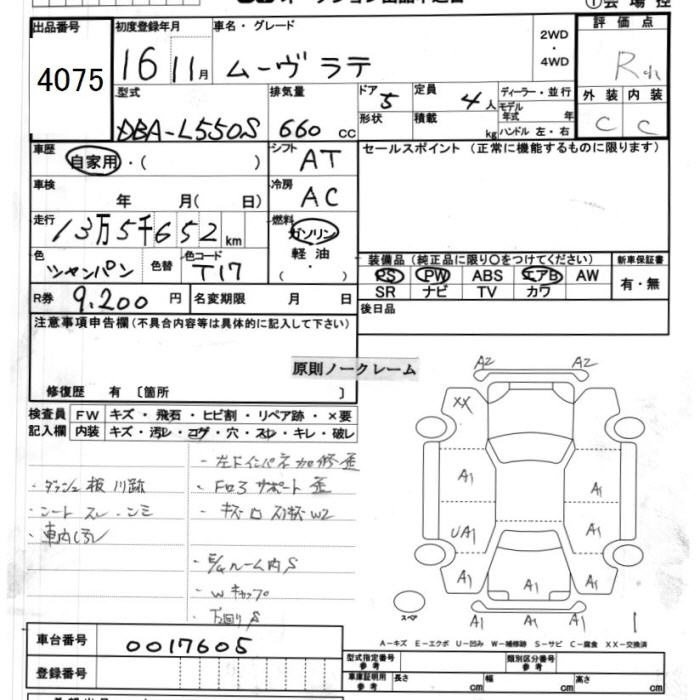 出品番号
4075
初度登録年月
16 11月
車名・グレード
ムーヴ ラテ
2WD
・
4WD
評価点
R
外装 内装
C C
型式
DBA-L550S
排気量
660 cc
ドア 5
形状
定員 4人
積載 kg
ディーラー・並行
モデル年式 年
ハンドル 左・右
車歴
自家用・( )
シフト
AT
セールスポイント (正常に機能するものに限ります)
車検
年 月( 日)
冷房
AC
走行
13万5千652km
燃料
ガソリン
軽油
( ・ )
色
シャンパン
色替
色コード
T17
装備品 (純正品に限り○をつけてください)
PS PW ABS エアB AW
SR ナビ TV カワ
新車保証書
有・無
R券 9.200 円
名変期限 月 日
後日品
注意事項申告欄(不具合内容等は具体的に記入して下さい)
原則ノークレーム
修復歴 有 〔箇所 〕
検査員
記入欄
FW キズ・飛石・ヒビ割・リペア跡・×要
内装 キズ・汚レ・コゲ・穴・スレ・キレ・破レ
・左下インパネ加修歪
・ダッシュ板 爪跡
・Fロアサポート歪
・シート スレ・シミ
・車内汚レ
・Wキャップ
・下回りS
A2 A2
XX
A1 A1
UA1 A1
A1 A1 A1
A1 A1 A1
スペア
A－キズ E－エクボ U－凹み W－補修跡 S－サビ C－腐食 XX－交換済
車台番号
0017605
登録番号
型式指定番号
参考
類別区分番号
参考
車庫証明用
参考
長さ cm 幅 cm 高さ cm